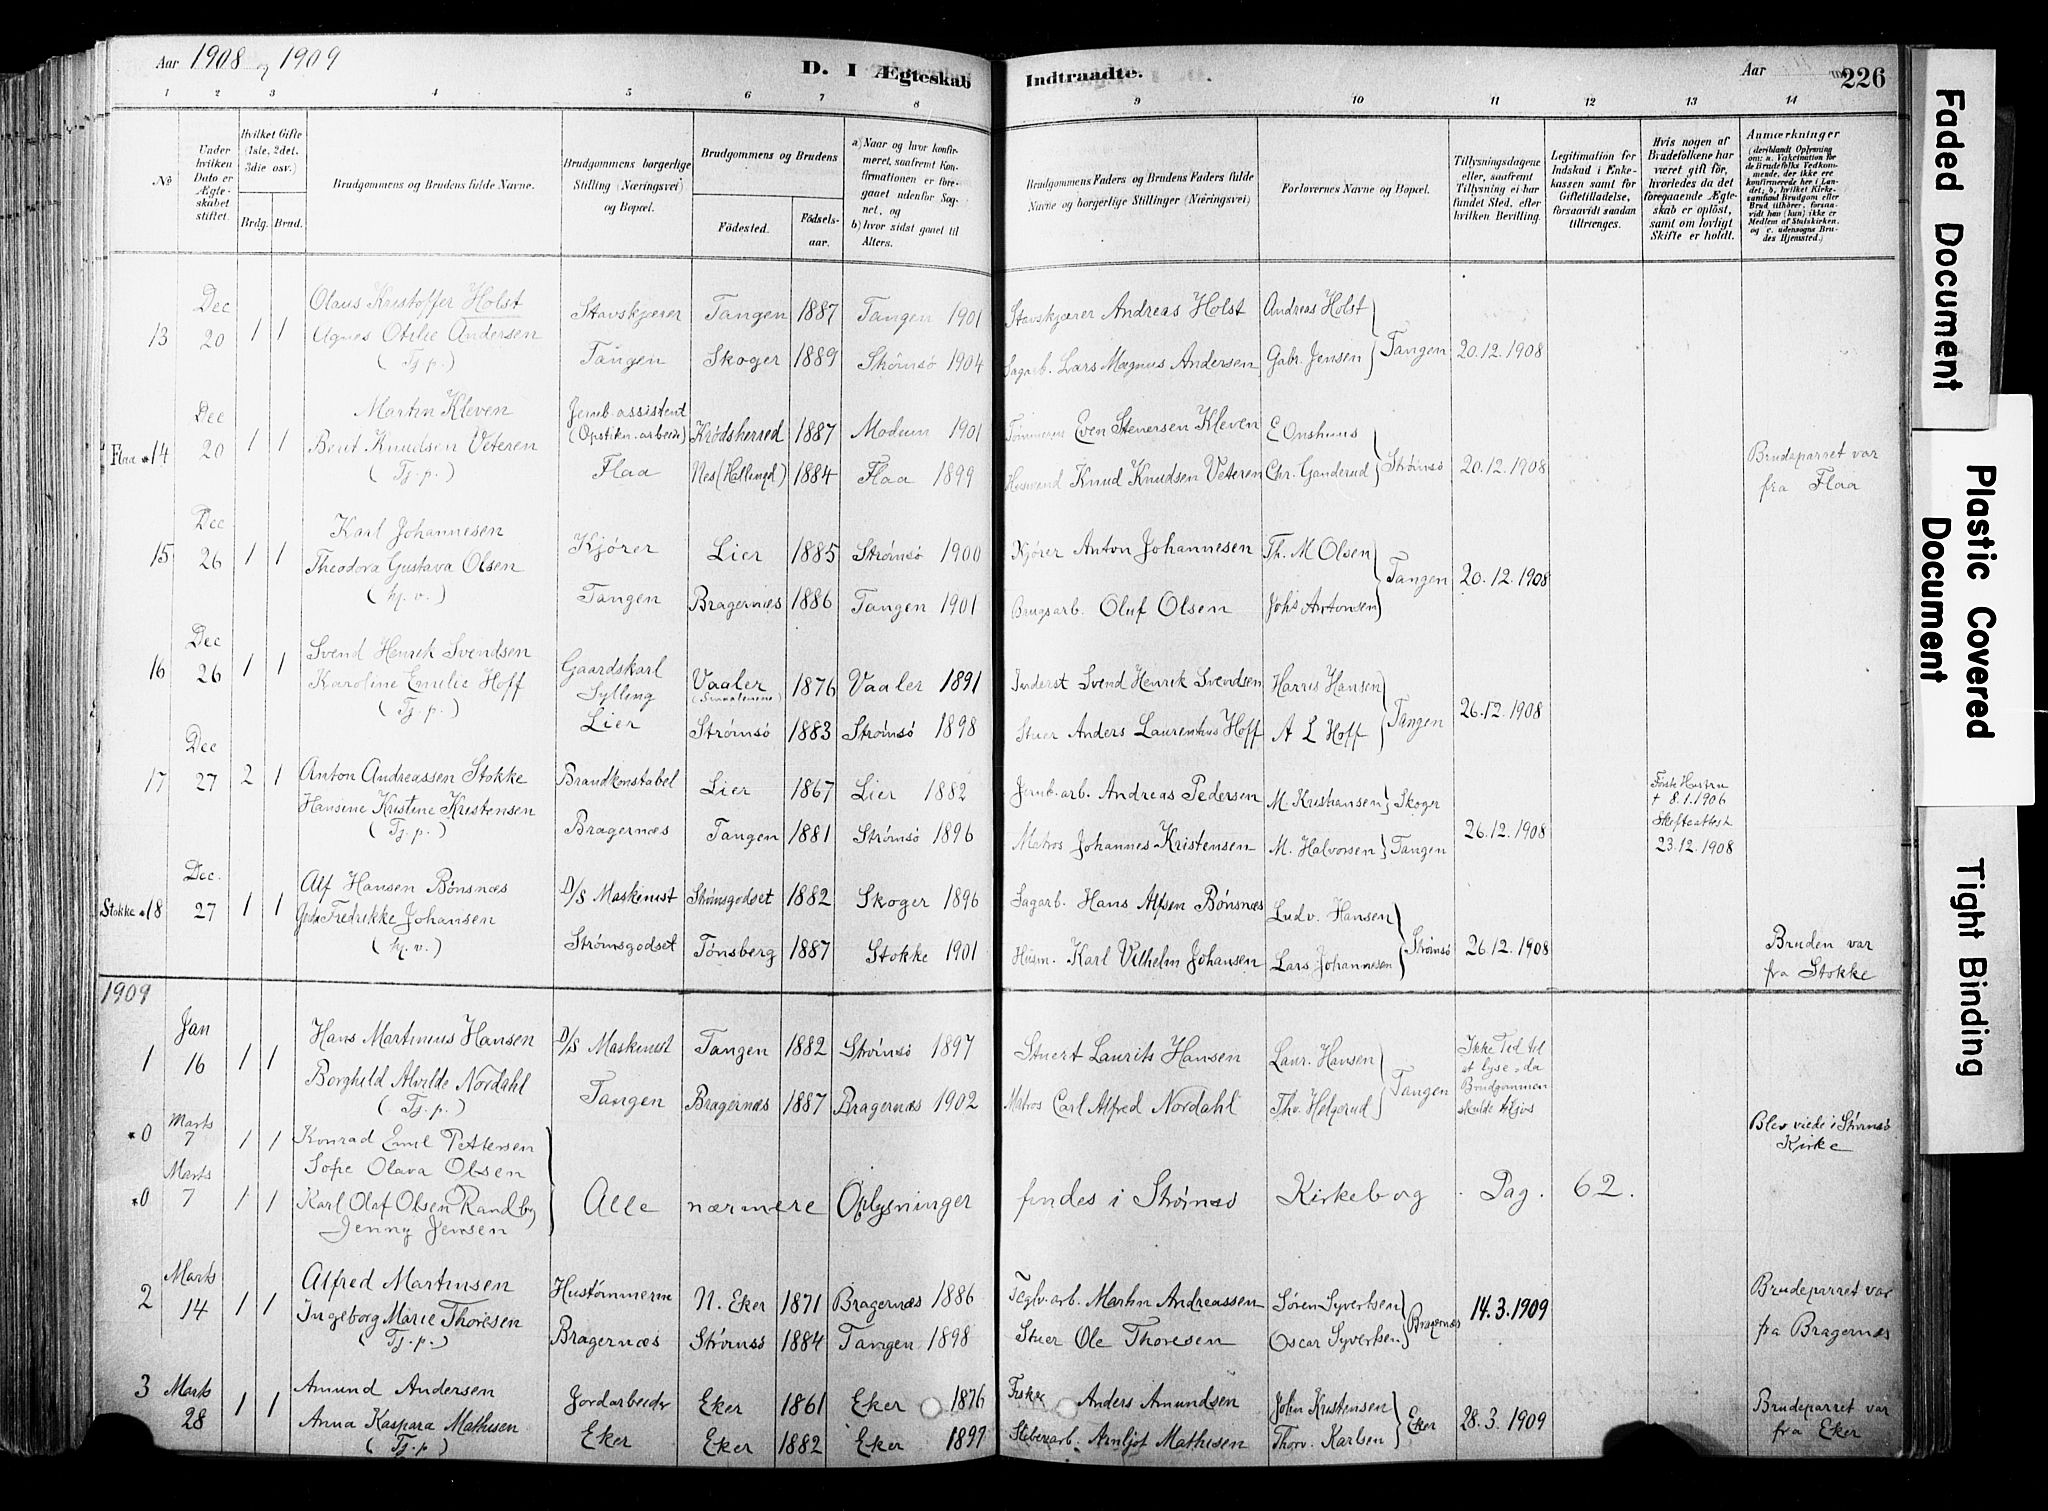 Aar 1908 og 1909
D. I Ægteskab Indtraadte.
Aar
226
1 2 3 4 5 6 7 8 9 10 11 12 13 14
No
Under hvilken Dato er Ægteskabet stiftet.
Hvilket Gifte (1ste, 2det, 3die osv.)
Brdg. Brud.
Brudgommens og Brudens fulde Navne.
Brudgommens borgerlige Stilling (Næringsvei) og Bopæl.
Brudgommens og Brudens
Fødested. Fødselsaar.
a) Naar og hvor konfirmeret, saafremt Konfirmationen er foregaaet udenfor Sognet, og
b) hvor sidst gaaet til Alters.
Brudgommens Faders og Brudens Faders fulde Navne og borgerlige Stillinger (Næringsvei)
Forlovernes Navne og Bopæl.
Tillysningsdagene eller, saafremt Tillysning ei har fundet Sted, efter hvilken Bevilling.
Legitimation for Indskud i Enkekassen samt for Giftetilladelse, forsaavidt saadan tiltrænges.
Hvis nogen af Brudefolkene har været gift før, hvorledes da det foregaaende Ægteskab er opløst, samt om lovligt Skifte er holdt.
Anmærkninger (deriblandt Oplysning om: a. Vakcination for de Brudefolks Vedkommende, der ikke ere konfirmerede her i Landet; b. hvilket Kirkesamfund Brudgom eller Brud tilhører, forsaavidt han (hun) ikke er Medlem af Statskirken, og c. udensogns Brudes Hjemsted.)
13 Dec 20 1 1 Olaus Kristoffer Holst Stavskjærer Tangen 1887 Tangen 1901 Stavskjærer Andreas Holst Andreas Holst
Agnes Otilie Andersen Tangen Skoger 1889 Strømsö 1904 Sagarb. Lars Magnus Andersen Gabr. Jensen Tangen 20.12.1908
(Tj. p.)
Flaa 14 Dec 20 1 1 Martin Kleven Jernb. assistent (Opstikn. arbeide) Krødsherred 1887 Modum 1901 Even Stenersen Kleven E Onshuus
Berit Knudsen Veteren Flaa Nes (Hallingd) 1884 Flaa 1899 Husmand Knud Knudsen Veteren Chr. Ganderud Strømsö 20.12.1908 Brudeparret var fra Flaa
(Tj. p.)
15 Dec 26 1 1 Karl Johannesen Kjører Lier 1885 Strømsö 1900 Kjører Anton Johannesen Th. M Olsen
Theodora Gustava Olsen Tangen Bragernæs 1886 Tangen 1901 Brugsarb. Oluf Olsen Johs Antonsen Tangen 20.12.1908
(hj. v.)
16 Dec 26 1 1 Svend Henrik Svendsen Gaardskarl Sylling Vaaler (Smaalenene) 1876 Vaaler 1891 Inderst Svend Henrik Svendsen Harris Hansen
Karoline Emilie Hoff Lier Strømsö 1883 Strømsö 1898 Stuer Anders Laurentius Hoff A L Hoff Tangen 26.12.1908
(Tj. p.)
17 Dec 27 2 1 Anton Andreassen Stokke Brandkonstabel Lier 1867 Lier 1882 Jernb. arb. Andreas Pedersen M. Kristiansen Skoger Første Hustru † 8.1.1906
Hansine Kristine Kristensen Bragernæs Tangen 1881 Strømsö 1896 Matros Johannes Kristensen M. Halvorsen Tangen 26.12.1908 Skifteattest 23.12.1908
(Tj. p.)
Stokke 18 Dec. 27 1 1 Alf Hansen Bönsnæs D/S Maskinist Strömsgodset 1882 Skoger 1896 Sagarb. Hans Alfsen Bönsnæs Ludv. Hansen
Fredrikke Johansen Strømsgodset Tønsberg 1887 Stokke 1901 Husm. Karl Vilhelm Johansen Lars Johannesen Strömsö 26.12.1908 Bruden var fra Stokke
(hj. v.)
1909
1 Jan 16 1 1 Hans Martinius Hansen D/S Maskinist Tangen 1882 Strömsö 1897 Stuert Laurits Hansen Laur. Hansen Ikke Tid til at lyse, da
Borghild Alvilde Nordahl Tangen Bragernæs 1887 Bragernæs 1902 Matros Carl Alfred Nordahl Thv. Helgerud Tangen Brudgommen skulde tilsjøs
(Tj. p.)
*0 Marts 7 1 1 Konrad Emil Pettersen Blev viede i Strömsö Kirke
Sofie Olava Olsen
*0 Marts 7 1 1 Karl Olaf Olsen Randby Alle nærmere Oplysninger findes i Strömsö Kirkebog. Pag. 62.
Jenny Jensen
2 Marts 14 1 1 Alfred Martinsen Hustömmerm N. Eker 1871 Bragernæs 1886 Teglv. arb. Martin Andreassen Sören Syvertsen Brudeparret var
Ingeborg Marie Thoresen Bragernæs Strömsö 1884 Tangen 1898 Stuer Ole Thoresen Oscar Syvertsen Bragernæs 14.3.1909 fra Bragernæs
(Tj. p.)
3 Marts 28 1 1 Amund Andersen Jordarbeider Eker 1861 Eker 1876 Fisker Anders Amundsen John Kristensen Brudeparret var
Anna Kaspara Mathisen Eker Eker 1882 Eker 1897 Sliberarb. Arnljot Mathisen Thorv. Karlsen Eker 28.3.1909 fra Eker
(Tj. p)
Faded Document
Plastic Covered Document
Tight Binding